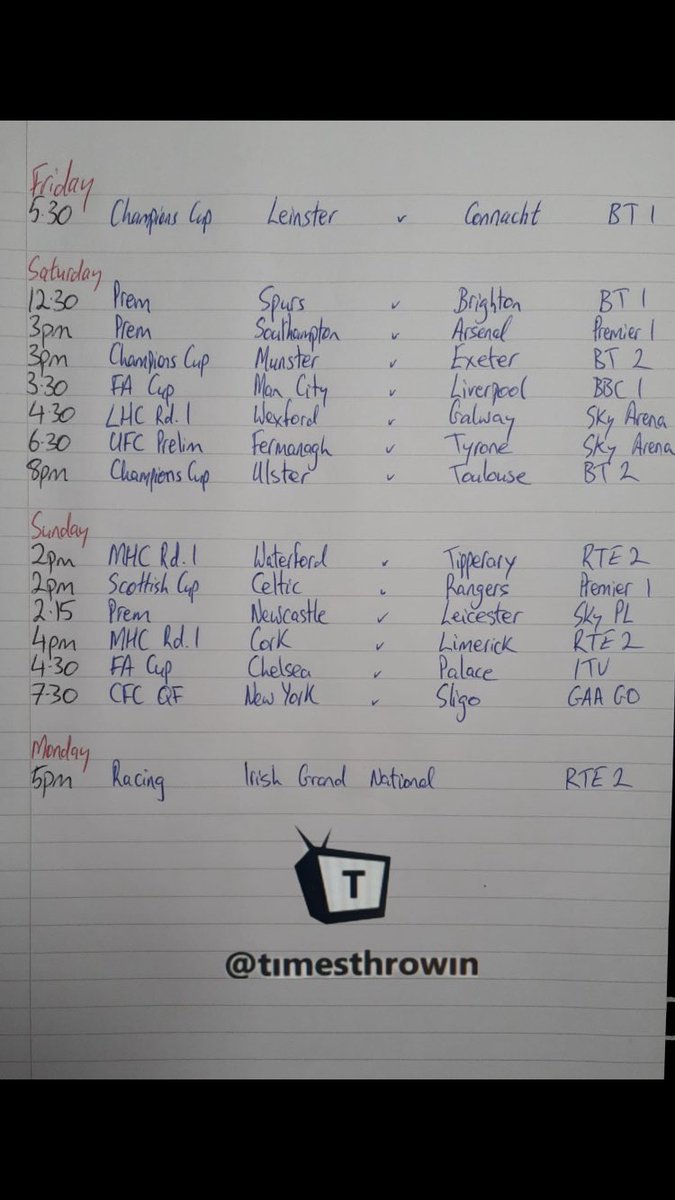 Friday
5.30 Champions Cup Leinster v Connacht BT 1
Saturday
12.30 Prem Spurs v Brighton BT 1
3pm Prem Southampton v Arsenal Premier 1
3pm Champions Cup Munster v Exeter BT 2
3.30 FA Cup Man City v Liverpool BBC 1
4.30 LHC Rd.1 Wexford v Galway Sky Arena
6.30 UFC Prelim Fermanagh v Tyrone Sky Arena
8pm Champions Cup Ulster v Toulouse BT 2
Sunday
2pm MHC Rd.1 Waterford v Tipperary RTE 2
2pm Scottish Cup Celtic v Rangers Premier 1
2.15 Prem Newcastle v Leicester Sky PL
4pm MHC Rd.1 Cork v Limerick RTE 2
4.30 FA Cup Chelsea v Palace ITV
7.30 CFC QF New York v Sligo GAA GO
Monday
5pm Racing Irish Grand National RTE 2
T
@timesthrowin